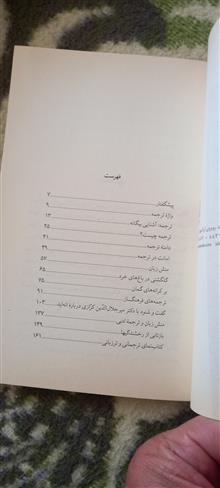 فهرست
پیشگفتار ۷
واژهٔ ترجمه ۹
ترجمه: آشنایی بیگانه ۱۳
ترجمه چیست؟ ۲۵
دامنهٔ ترجمه ۳۱
امانت در ترجمه ۳۹
منش زبان ۵۷
گلگشتی در باغ‌های خرد ۶۵
بر کرانه‌های گمان ۷۵
ترجمه‌های فرهنگساز ۹۱
گفت و شنود با دکتر میرجلال‌الدین کزازی دربارهٔ انه‌اید ۱۰۳
منش زبان و ترجمهٔ ادبی ۱۳۷
بازتابی از رخشندگیها ۱۴۹
کتاب‌نمای ترجمانی و ترزبانی ۱۶۱